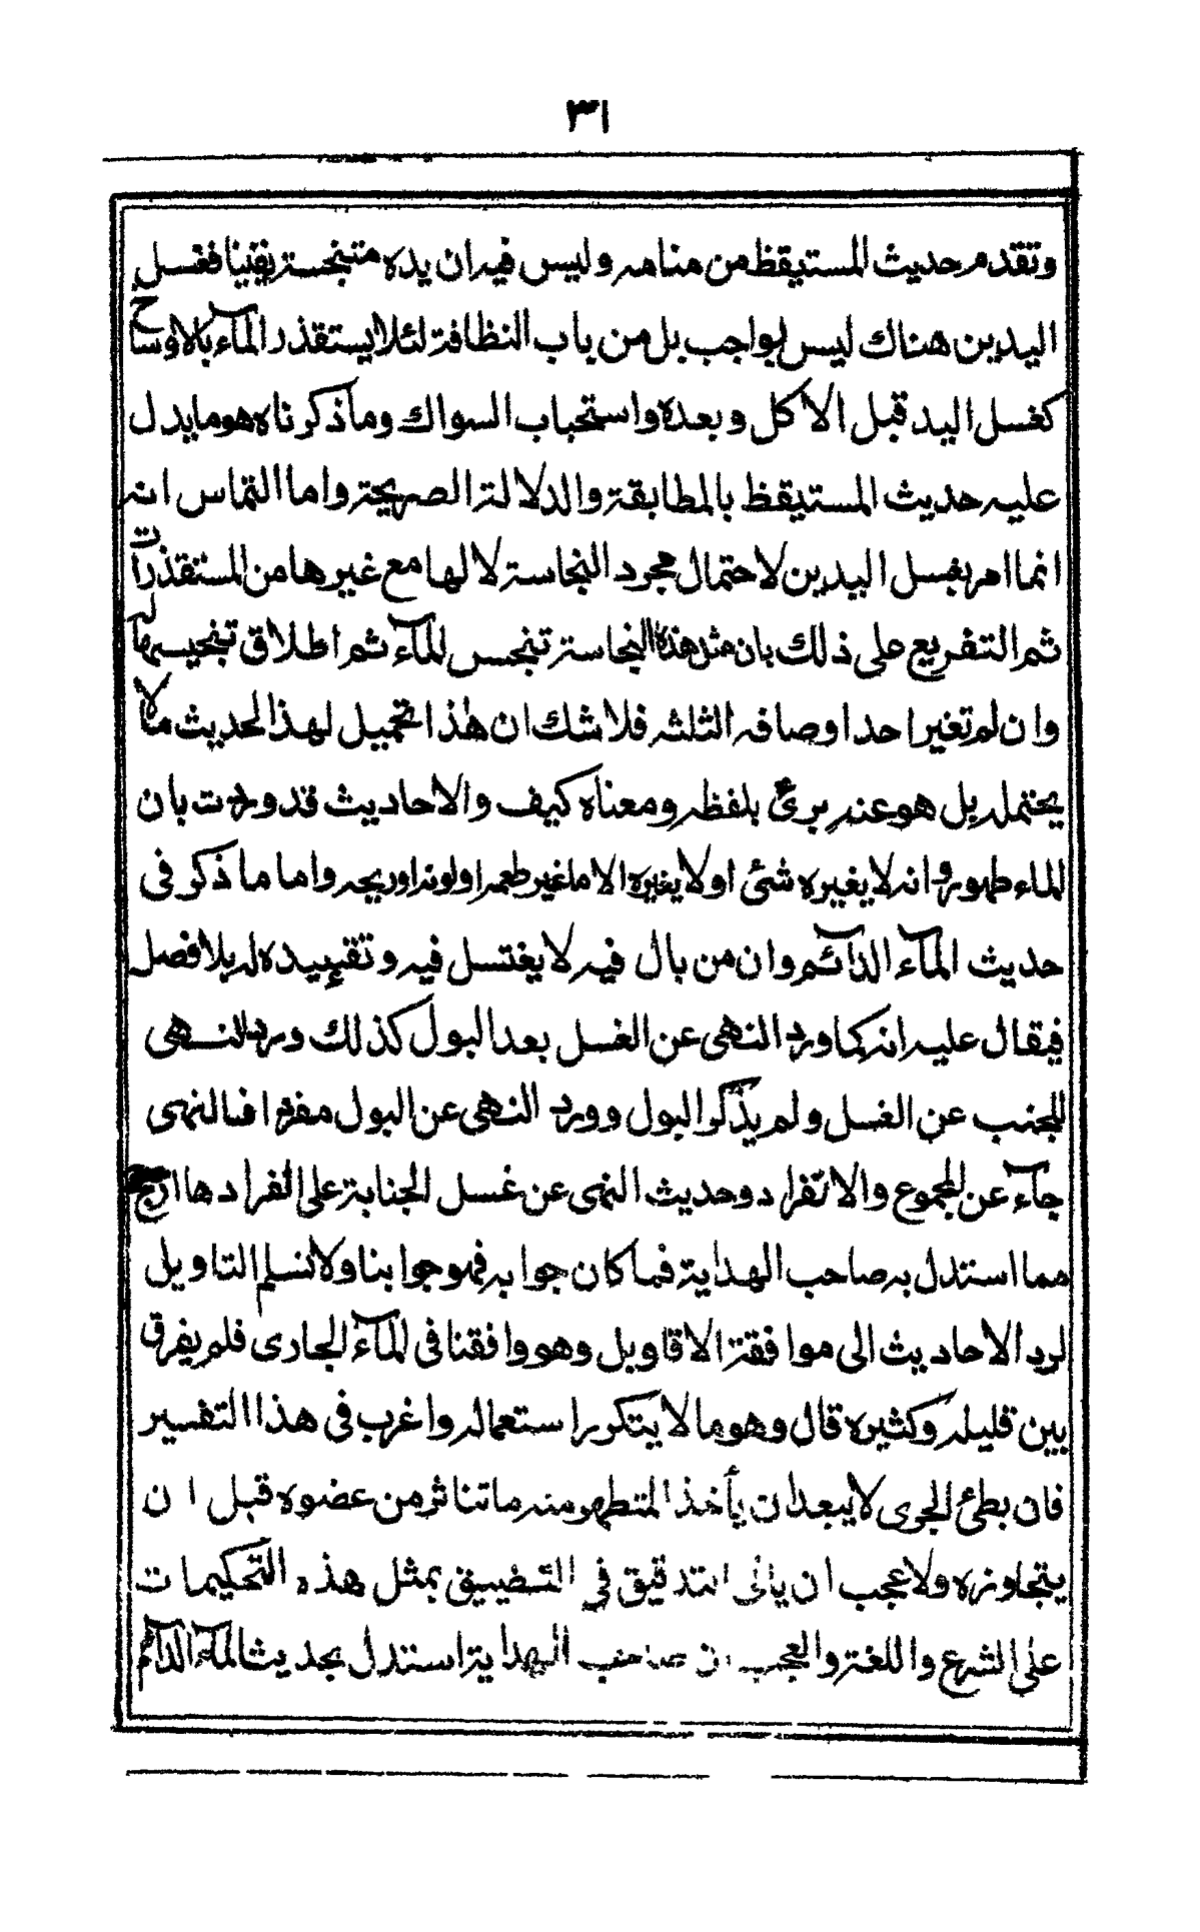 ٣١
وتقدم حديث المستيقظ من منامه وليس فيه ان يده متنجسة يقينا فغسل
اليدين هناك ليس بواجب بل من باب النظافة لئلا يستقذر المآء بالاوساخ
كغسل اليد قبل الاكل وبعده واستحباب السواك وماذكرناه هو مايدل
عليه حديث المستيقظ بالمطابقة والدلالة الصريحة واما التماس انه
انما امر بغسل اليدين لاحتمال مجرد النجاسة لا لها مع غيرها من المستقذرات
ثم التفريع على ذلك بان مثل هذه النجاسة تنجس للمآء ثم اطلاق تنجيسها له
وان لم تغير احد اوصافه الثلثه فلا شك ان هذا تحميل لهذا الحديث مالا
يحتمله بل هو عنه برئ بلفظه ومعناه كيف والاحاديث قد وردت بان
الماء طهور وانه لا يغيره شئ اولا يغيره الا ماغير طعمه او لونه او ريحه واما ما ذكر فى
حديث المآء الدآئم وان من بال فيه لا يغتسل فيه وتقييده له بلا فصل
فيقال عليه انه كما ورد النهى عن الغسل بعد البول كذلك ورد النهى
للجنب عن الغسل ولم يذكر البول وورد النهى عن البول مفردا فالنهى
جآء عن المجموع والانفراد وحديث النهى عن غسل الجنابة على انفرادها ارجح
مما استدل به صاحب الهداية فما كان جوابه فهو جوابنا ولا نسلم التاويل
لرد الاحاديث الى موافقة الاقاويل وهو وافقنا فى المآء الجارى فلم يفرق
بين قليله وكثيره قال وهو ما لا يتكرر استعماله واغرب فى هذا التفسير
فان بطئ الجرى لا يبعد ان يأخذ المتطهر منه ماتناثر من عضوه قبل ان
يتجاوزه ولا عجب ان التدقيق في التضييق بمثل هذه التحكيمات
على الشرع واللغة والعجب ان صاحب الهداية استدل بحديث المآء الدآئم